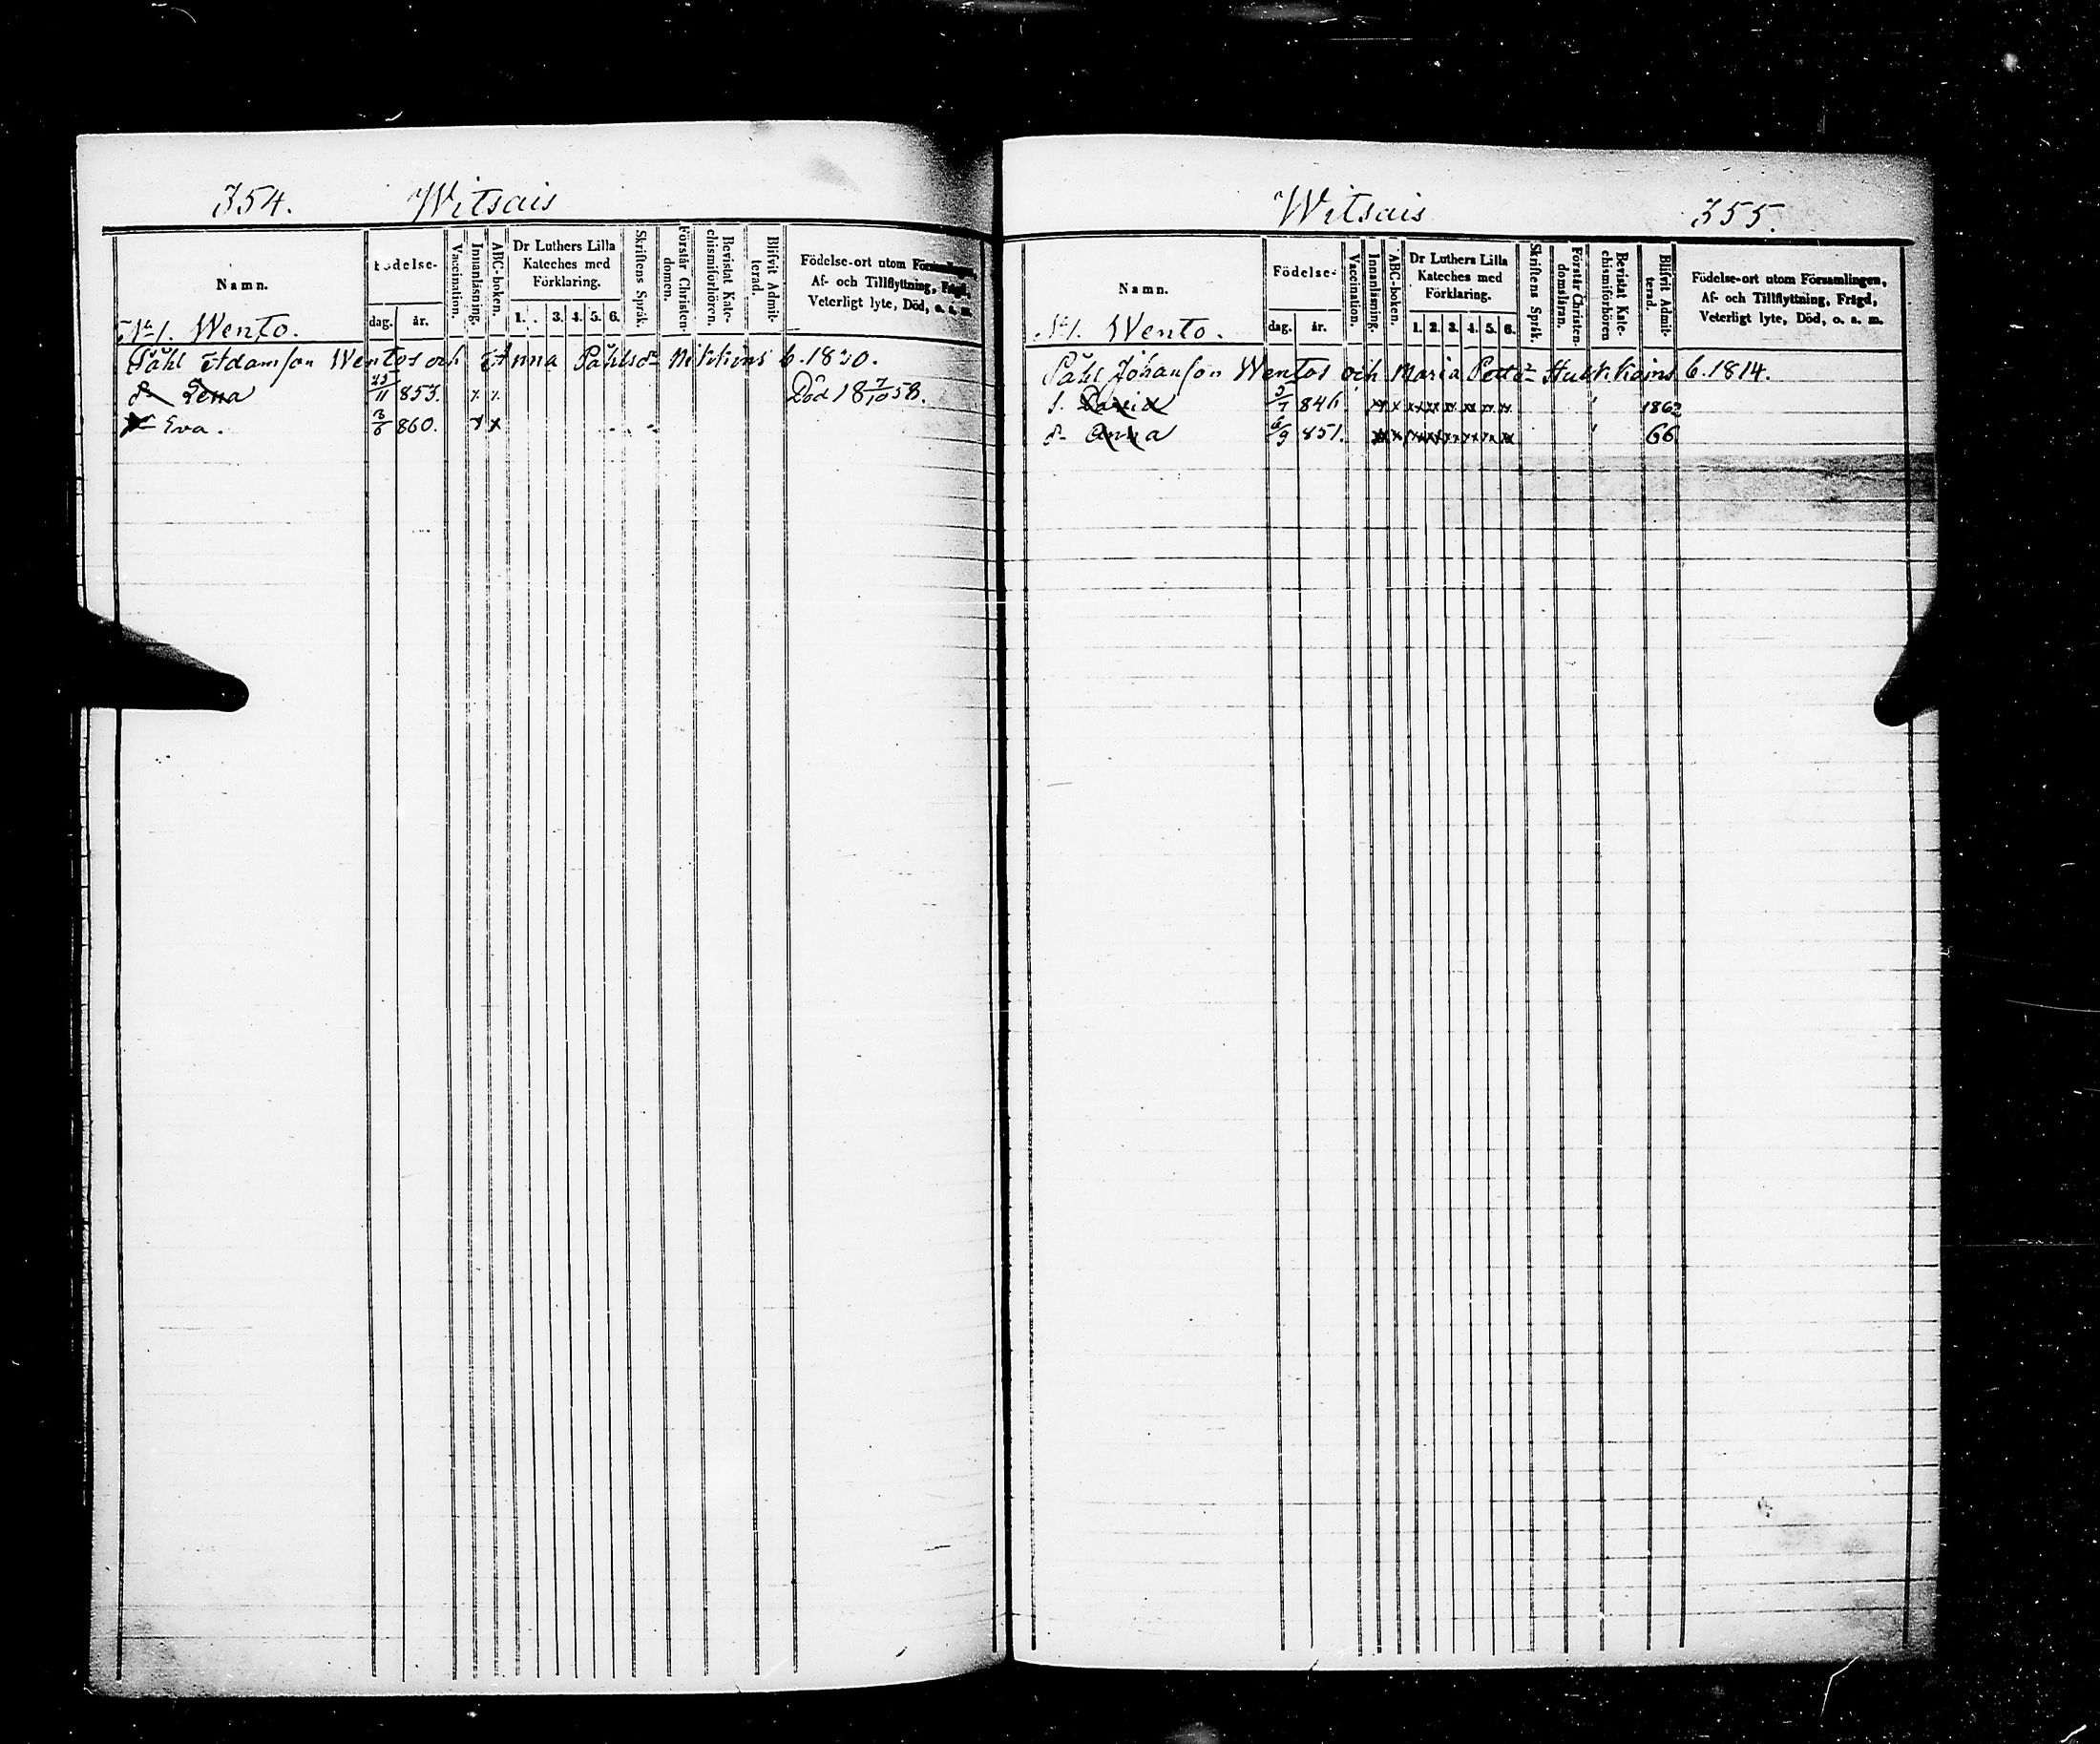 354. Witsais
Namn.
Födelse-
dag. år.
Vaccination.
Innanläsning.
ABC-boken.
Dr Luthers Lilla
Kateches med
Förklaring.
1. 3. 4. 5. 6.
Skriftens Språk.
Förstår Christen-
domen.
Bevistat Kate-
chismiförhören.
Blifvit Admit-
terad.
Födelse-ort utom Församlingen,
Af- och Tillflyttning, Frägd,
Veterligt lyte, Död, o. s. m.
No 1. Wento.
Påhl Adamson Wentos och Anna Påhlsdr Mikkins b. 1830.
dr Lena 23/11 853. x x Död 18 7/10 58.
Eva. 3/6 860. x x
Witsais 355.
Namn.
Födelse-
dag. år.
Vaccination.
Innanläsning.
ABC-boken.
Dr Luthers Lilla
Kateches med
Förklaring.
1. 2. 3. 4. 5. 6.
Skriftens Språk.
Förstår Christen-
domsläran.
Bevistat Kate-
chismiförhören
Blifvit Admit-
terad.
Födelse-ort utom Församlingen,
Af- och Tillflyttning, Frägd,
Veterligt lyte, Död, o. a. m.
No 1. Wento.
Påhl Johanson Wentos och Maria Petter Hukkains b. 1814.
s. David 846 1862
dr Anna 6/9 851. 66